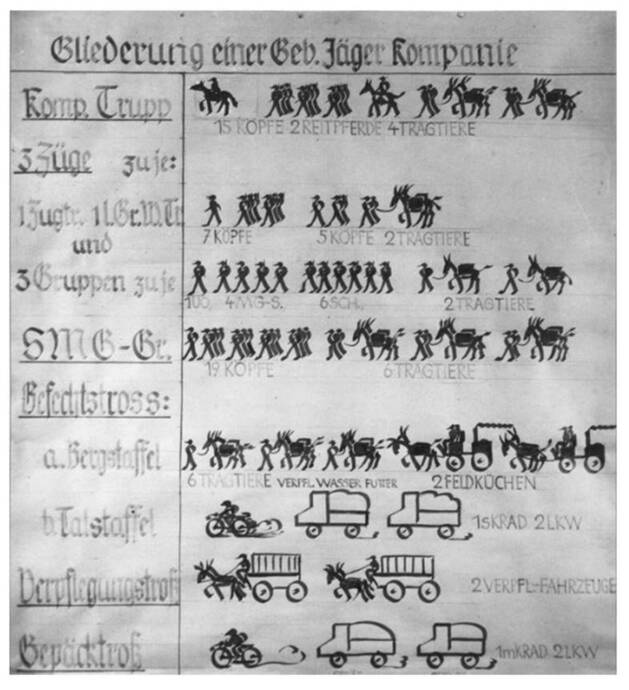 Gliederung einer Geb. Jäger Kompanie
Komp. Trupp
15 KÖPFE 2 REITPFERDE 4 TRAGTIERE
3 Züge zu je:
1 Zugtr. 1 l.Gr.W.Tr.
7 KÖPFE 5 KÖPFE 2 TRAGTIERE
und
3 Gruppen zu je
1 UO, 4 MG-S. 6 SCH., 2 TRAGTIERE
SMG-Gr.
19 KÖPFE 6 TRAGTIERE
Gefechtstross:
a. Bergstaffel
6 TRAGTIERE VERPFL. WASSER FUTTER 2 FELDKÜCHEN
b. Talstaffel
1 sKRAD 2 LKW
Verpflegungstroß
2 VERPFL-FAHRZEUGE
Gepäcktroß
1 mKRAD 2 LKW